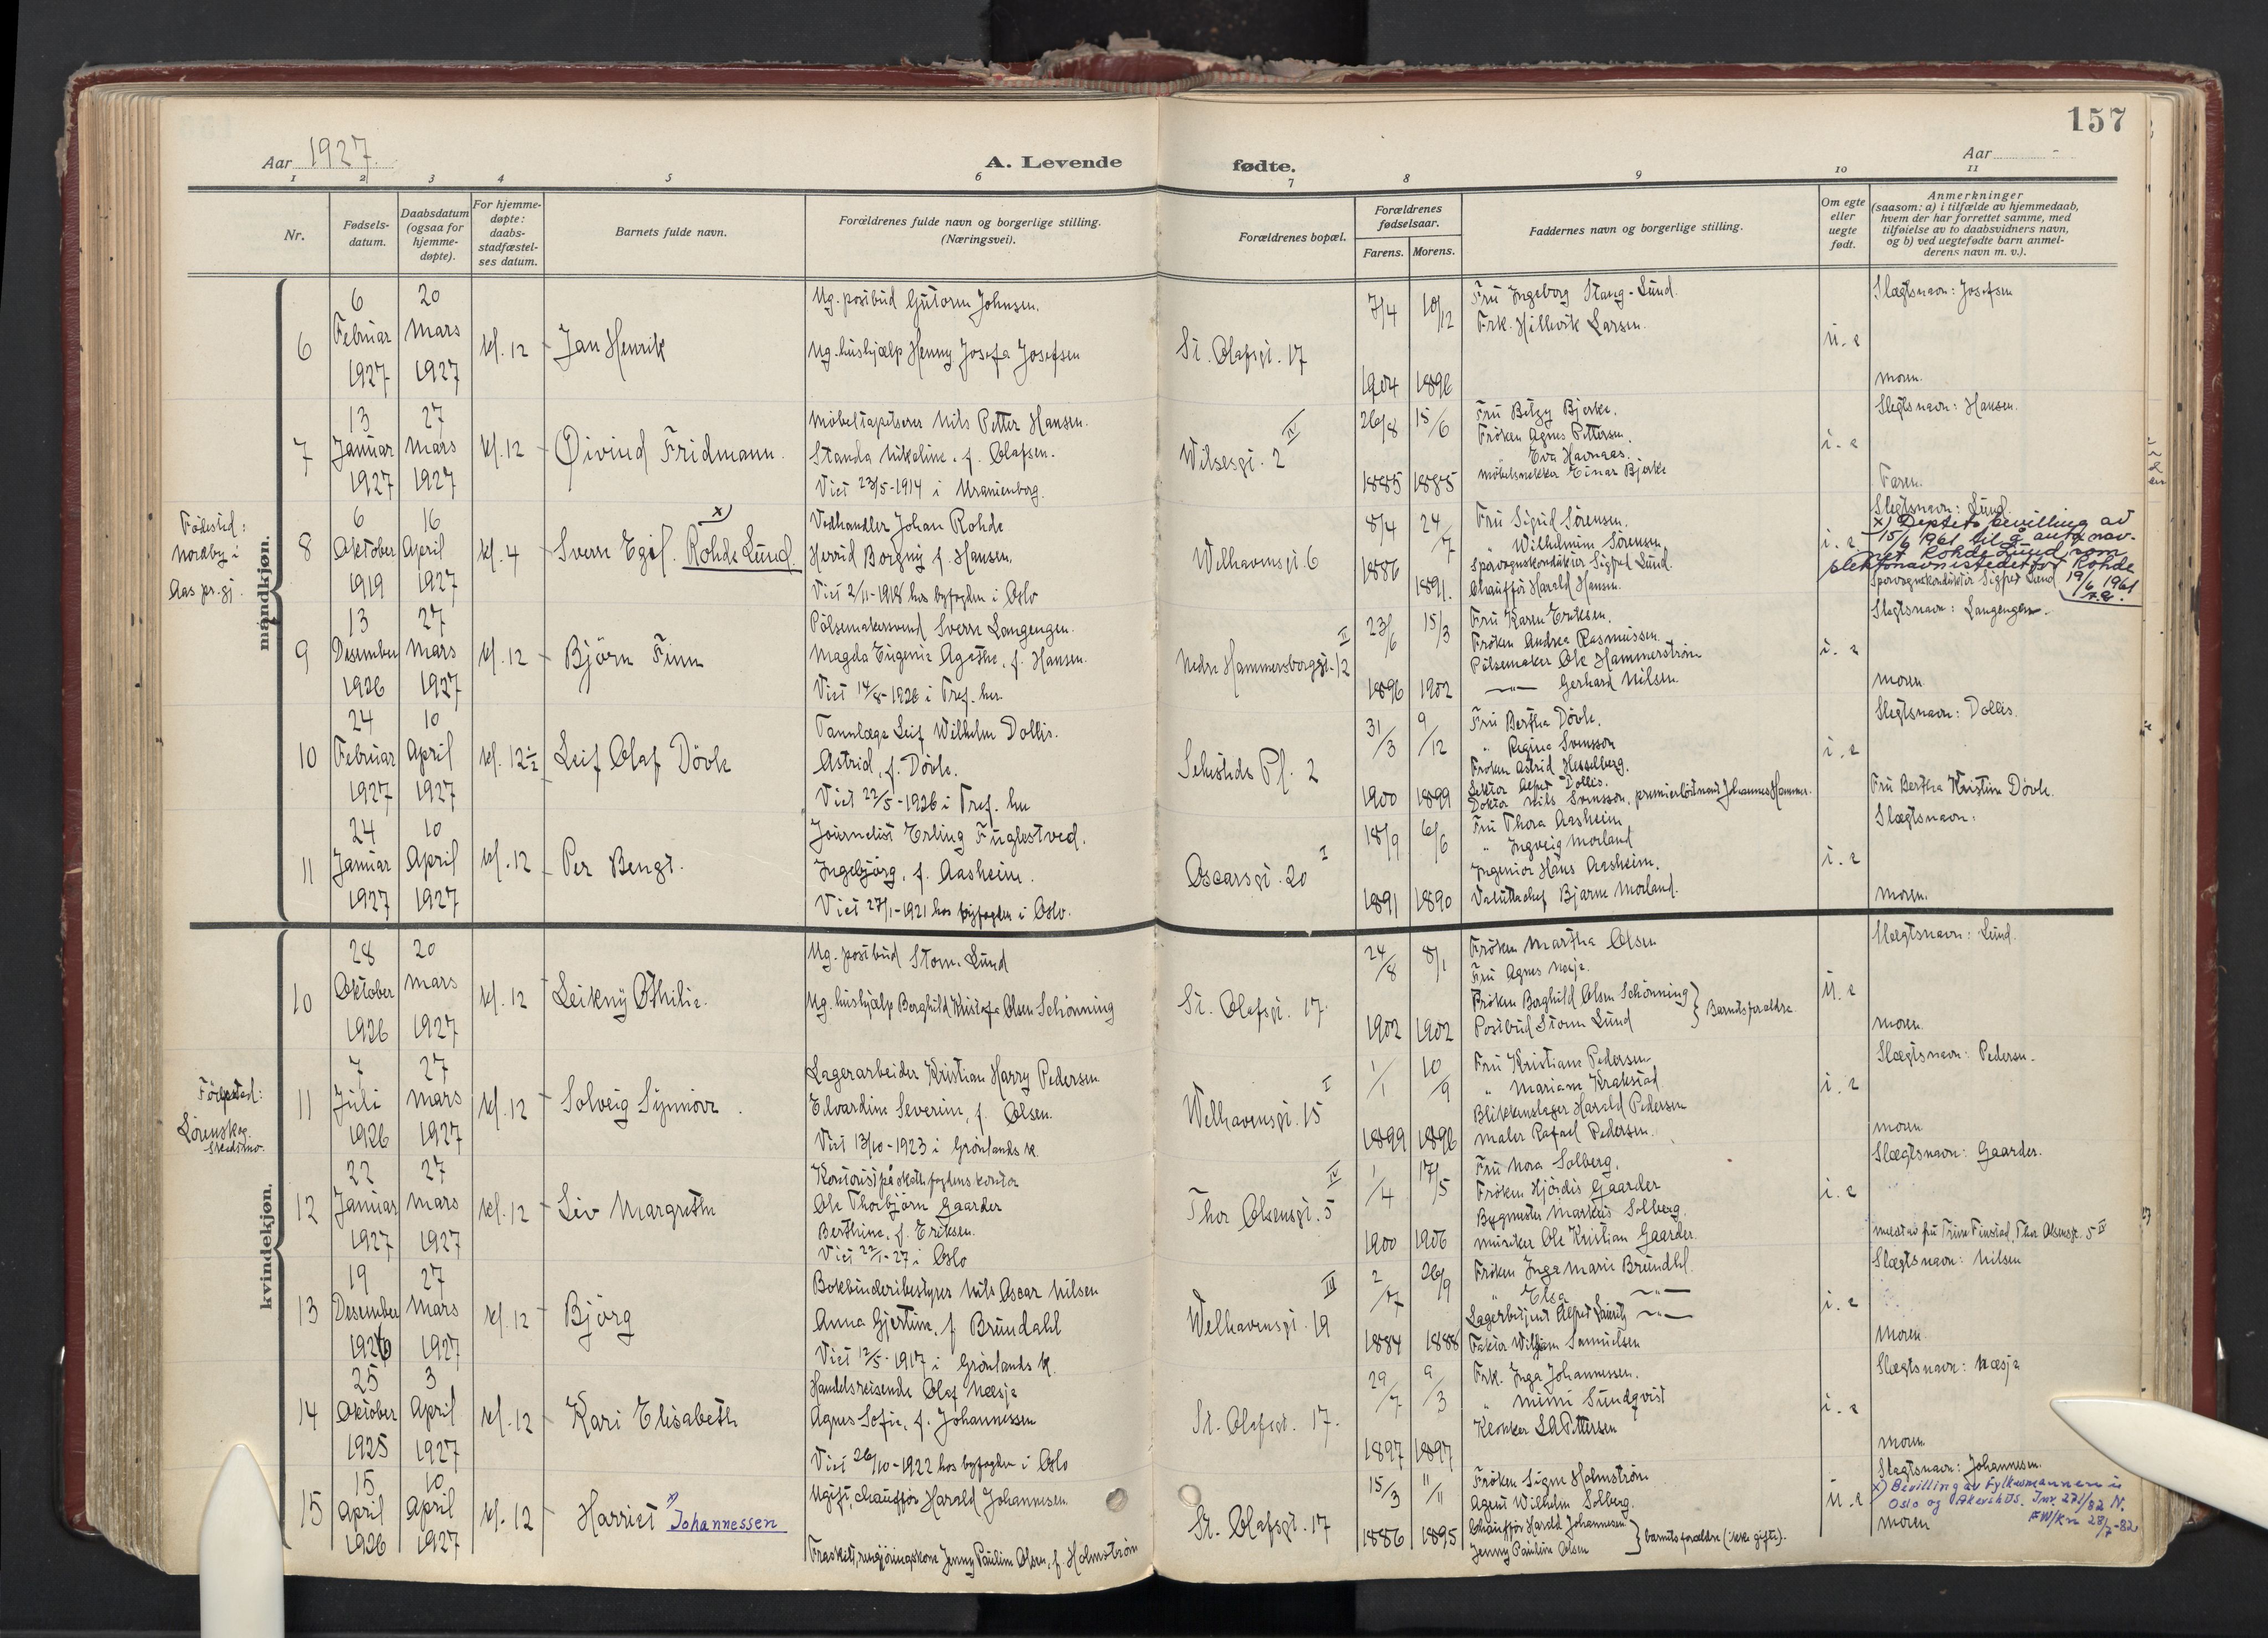 157
Aar 1927. A. Levende fødte. Aar
1 2 3 4 5 6 7 8 9 10 11
Nr.
Fødsels-
datum.
Daabsdatum
(ogsaa for
hjemme-
døpte).
For hjemme-
døpte:
daabs-
stadfæstel-
ses datum.
Barnets fulde navn.
Forældrenes fulde navn og borgerlige stilling.
(Næringsvei).
Forældrenes bopæl.
Forældrenes
fødselsaar.
Farens. Morens.
Faddernes navn og borgerlige stilling.
Om egte
eller
uegte
født.
Anmerkninger
(saasom: a) i tilfælde av hjemmedaab,
hvem der har forrettet samme, med
tilføielse av to daabsvidners navn,
og b) ved uegtefødte barn anmel-
derens navn m. v.).
mandkjøn.
6
6 Februar 1927
20 Mars 1927
kl. 12
Jan Henrik
Ug. postbud Gutorm Johnsen.
Ug. hushjælp Henny Josefa Josefsen
St. Olafsgt. 17
7/4 1904
10/12 1896
Fru Ingeborg Stang-Lund.
Frk. Hillevik Larsen.
u. e
Slægtsnavn: Josefsen
moren.
7
13 Januar 1927
27 Mars 1927
kl. 12
Øivind Fridmann.
Møbeltapetserer Nils Petter Hansen.
Standa Nikoline, f. Olafsen.
Viet 23/5-1914 i Uranienborg.
Wilsesgt. 2 IV
26/8 1885
15/6 1885
Fru Betzy Bjerke.
Frøken Agnes Pettersen.
" Eva Havnaas.
møbelsnekker Einar Bjerke
i. e
Slegtsnavn: Hansen.
Faren.
Fødested:
Nordby i
Aas pr.gj.
8
6 Oktober 1919
16 April 1927
kl. 4
Sverre Egil. Rohde Lund. x)
Vedhandler Johan Rohde
Herrid Borgny f. Hansen.
Viet 2/11-1918 hos byfogden i Oslo
Welhavensgt. 6
8/4 1886
24/7 1891.
Fru Sigrid Sørensen.
" Wilhelmine Sørensen.
Sporvognskonduktør Sigfred Lund.
Chauffør Harald Hansen.
i. e
Slegtsnavn: Lund.
x) Deptets bevilling av
15/6 1961 til å anta nav-
net Rohde Lund som
slektsnavn istedetfor Rohde
Sporvognskonduktør Sigfred Lund 19/6 1961
9
13 Desember 1926
27 Mars 1927
kl. 12
Bjørn Finn
Pølsemakersvend Sverre Langengen.
Magda Eugenie Agathe, f. Hansen.
Viet 14/8-1926 i Tref. her
Nedre Hammersborggt. 12 II
23/6 1896
15/3 1902
Fru Karen Eriksen.
Frøken Andrea Rasmussen
Pølsemaker Ole Hammerstrøm
—"— Gerhard Nilsen
i. e
Slegtsnavn: Langengen.
moren
10
24 Februar 1927
10 April 1927
kl. 12 1/2
Leif Olaf Døvle
Tannlæge Leif Wilhelm Dollis.
Astrid, f. Døvle.
Viet 22/5-1926 i Tref. her
Sehesteds Pl. 2
31/3 1900
9/12 1899
Fru Bertha Døvle.
" Regine Svensson
Frøken Astrid Hesselberg.
Lektor Alfred Dollis.
Doktor Nils Svensson, premierløitnant Johannes Hammer.
i. e
Slegtsnavn: Dollis.
Fru Bertha Kristine Døvle.
11
24 Januar 1927
10 April 1927
kl. 12
Per Bengt.
Journalist Erling Fuglestved.
Ingebjørg, f. Aasheim.
Viet 27/1-1921 hos byfogden i Oslo.
Oscarsgt. 20 I
18/9 1891
6/6 1890
Fru Thora Aasheim
" Ingveig Morland
Ingeniør Hans Aasheim.
Valutachef Bjarne Morland.
i. e
Slægtsnavn:
moren.
kvindekjøn.
10
28 Oktober 1926
20 Mars 1927
kl. 12
Leikny Othilie.
Ug. postbud Storm Lund
Ug. hushjælp Borghild Kristofa Olsen Schønning
St. Olafsgt. 17.
24/8 1902
8/1 1902
Frøken Martha Olsen
Fru Agnes Næsje.
Frøken Borghild Olsen Schønning
Postbud Storm Lund
} Barnets forældre.
u. e
Slægtsnavn: Lund.
moren
Fødested:
Lørenskog
Skedsmo.
11
7 Juli 1926
27 Mars 1927
kl. 12
Solveig Synnøve.
Lagerarbeider Kristian Harry Pedersen
Edvardine Severine, f. Olsen.
Viet 13/10-1923 i Grønlands k.
Welhavensgt. 15 I
1/1 1899
10/9 1896
Fru Kristiane Pedersen
" Mariane Krakstad
Blikkenslager Harald Pedersen
maler Rafael Pedersen.
i. e
Slægtsnavn: Pedersen.
moren
12
22 Januar 1927
27 Mars 1927
kl. 12
Liv Margrethe
Kontorist på skattefogdens kontor
Ole Thorbjørn Gaarder
Berthine, f. Eriksen.
Viet 22/1-27 i Oslo
Thor Olsensgt. 5 IV
1/4 1900
17/5 1906
Fru Nora Solberg.
Frøken Hjørdis Gaarder
Bygmester Markus Solberg.
musiker Ole Kristian Gaarder.
i. e
Slægtsnavn: Gaarder.
meldt av fru Trine Finstad, Thor Olsensgt. 5 IV
13
19 Desember 1926
27 Mars 1927
kl. 12
Bjørg
Bokbinderibestyrer Nils Oscar Nilsen
Anna Gjertine, f Brundahl
Viet 12/5-1917 i Grønlands k.
Welhavensgt. 19 III
2/7 1884
26/9 1888
Frøken Inga Marie Brundhl.
" Elsa —"—
Lagerbetjent Alfred Lauritz —"—
Faktor William Samuelsen
i. e
Slægtsnavn: Nilsen
moren.
14
25 Oktober 1925
3 April 1927
kl. 12
Kari Elisabeth
Handelsreisende Olaf Næsje
Agnes Sofie, f. Johannessen
Viet 26/10-1922 hos byfogden i Oslo
St. Olafsgt. 17.
29/7 1897
9/3 1897
Frk. Inga Johannessen.
" Mimi Sundqvist
Klokker L A Pettersen
i. e
Slægtsnavn: Næsje
moren
15
15 April 1926
10 April 1927
kl. 12
Harriet x) Johannessen
Ugift, chauffør Harald Johannesen.
Fraskilt, rengjøringskone Jenny Pauline Olsen, f. Holmstrøm
St. Olafsgt. 17
15/3 1886
11/11 1895
Frøken Signe Holmstrøm
Agent Wilhelm Solberg.
Chauffør Harald Johannesen
Jenny Pauline Olsen
} barnets forældre (ikke gifte).
u. e
Slegtsnavn: Johannesen.
x) Bevilling av Fylkesmannen i
Oslo og Akershus. Jnr. 271/82 N.
FW/Km 28/7-82
moren